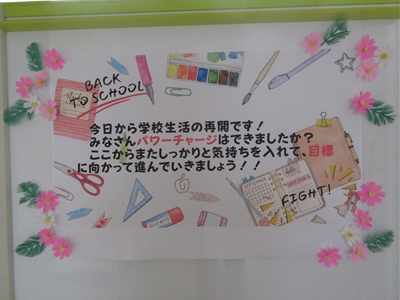 BACK
TO SCHOOL
今日から学校生活の再開です！
みなさんパワーチャージはできましたか？
ここからまたしっかりと気持ちを入れて、目標
に向かって進んでいきましょう！！
FIGHT!